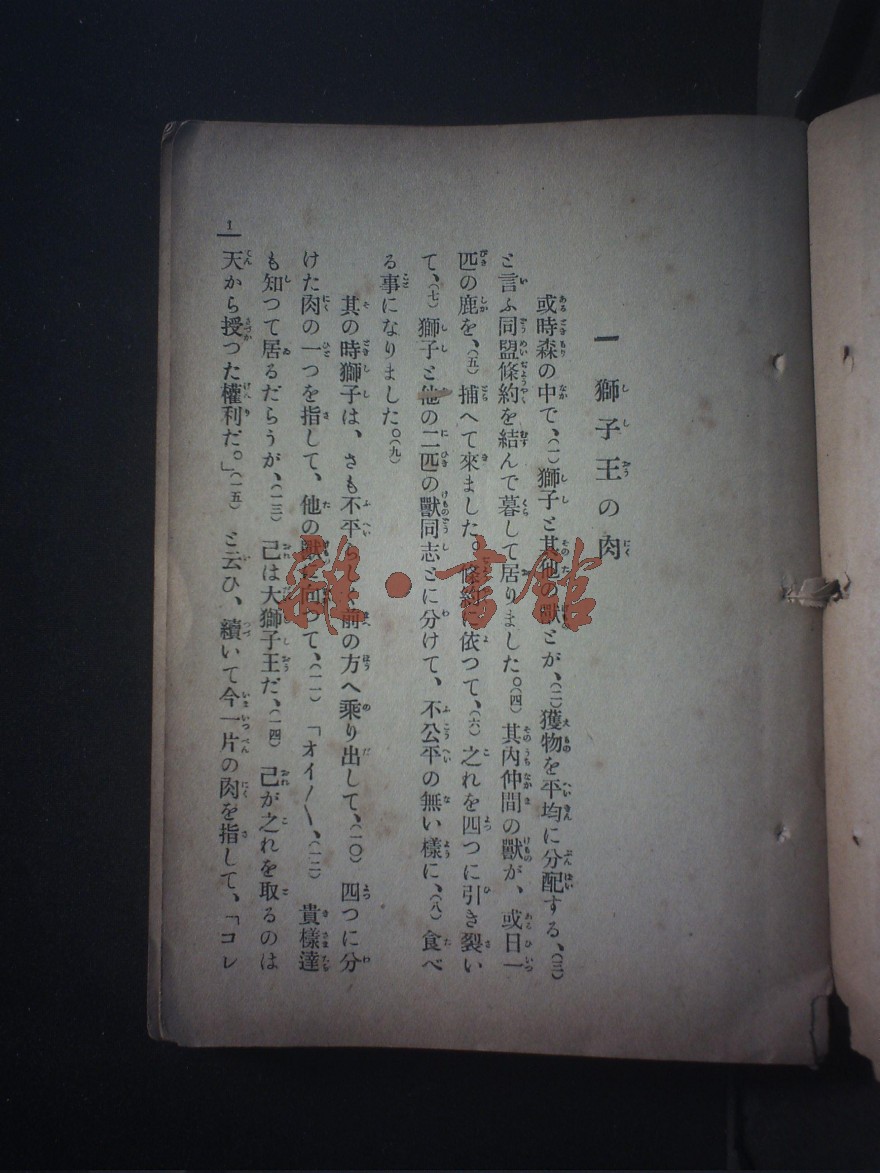 一 獅子王の肉
或時森の中で、(一)獅子と其他の獸とが、(二)獲物を平均に分配する、(三)
と言ふ同盟條約を結んで暮して居りました。(四)其內仲間の獸が、或日一
匹の鹿を、(五)捕へて來ました。條約に依つて、(六)之れを四つに引き裂い
て、(七)獅子と他の二匹の獸同志とに分けて、不公平の無い樣に、(八)食べ
る事になりました。(九)
其の時獅子は、さも不平らしく前の方へ乘り出して、(一〇)四つに分
けた肉の一つを指して、他の獸に向つて、(一一)「オイ〳〵、(一二)貴樣達
も知つて居るだらうが、(一三)己は大獅子王だ、(一四)己が之れを取るのは
天から授つた權利だ。」(一五)と云ひ、續いて今一片の肉を指して、「コレ
1
雜・書館